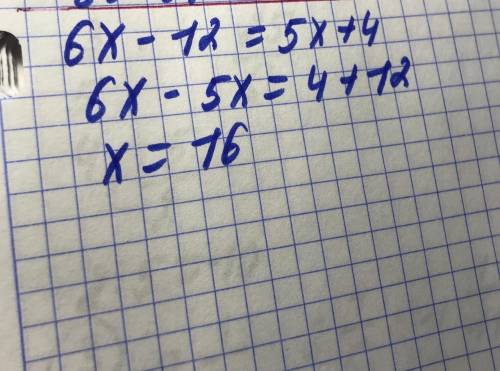 6x - 12 = 5x+4
6x - 5x = 4+12
x = 16